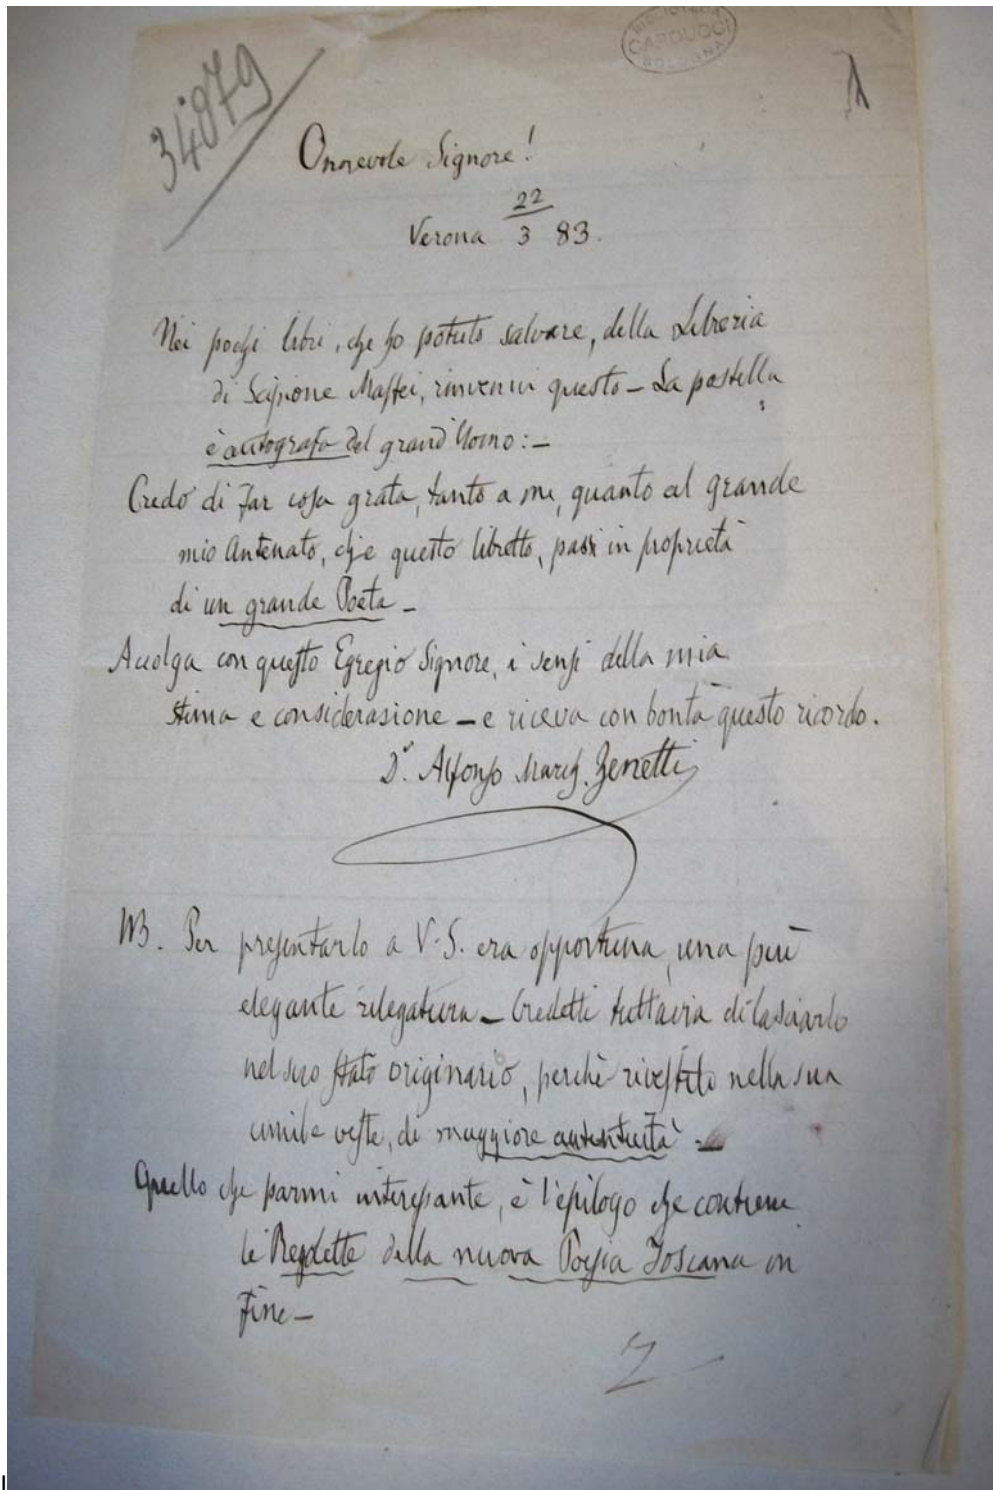 BIBLIOTECA
CARDUCCI
BOLOGNA
34879
Onorevole Signore!
Verona 22/3 83.
Nei pochi libri, che ho potuto salvare, della Libreria
di Scipione Maffei, rinvenni questo – La postilla
è autografa del grand'Uomo: –
Credo di far cosa grata, tanto a me, quanto al grande
mio Antenato, che questo libretto, passi in proprietà
di un grande Poeta –
Accolga con questo Egregio Signore, i sensi della mia
stima e considerasione – e riceva con bontà questo ricordo.
Dr. Alfonso March. Zenetti
NB. Per presentarlo a V. S. era opportuna, una più
elegante rilegatura – Credetti tuttavia di lasciarlo
nel suo stato originario, perchè rivestito nella sua
umile veste, di maggiore autenticità –
Quello che parmi interessante, è l'epilogo che contiene
le Regolette della nuova Poesia Toscana in
fine –